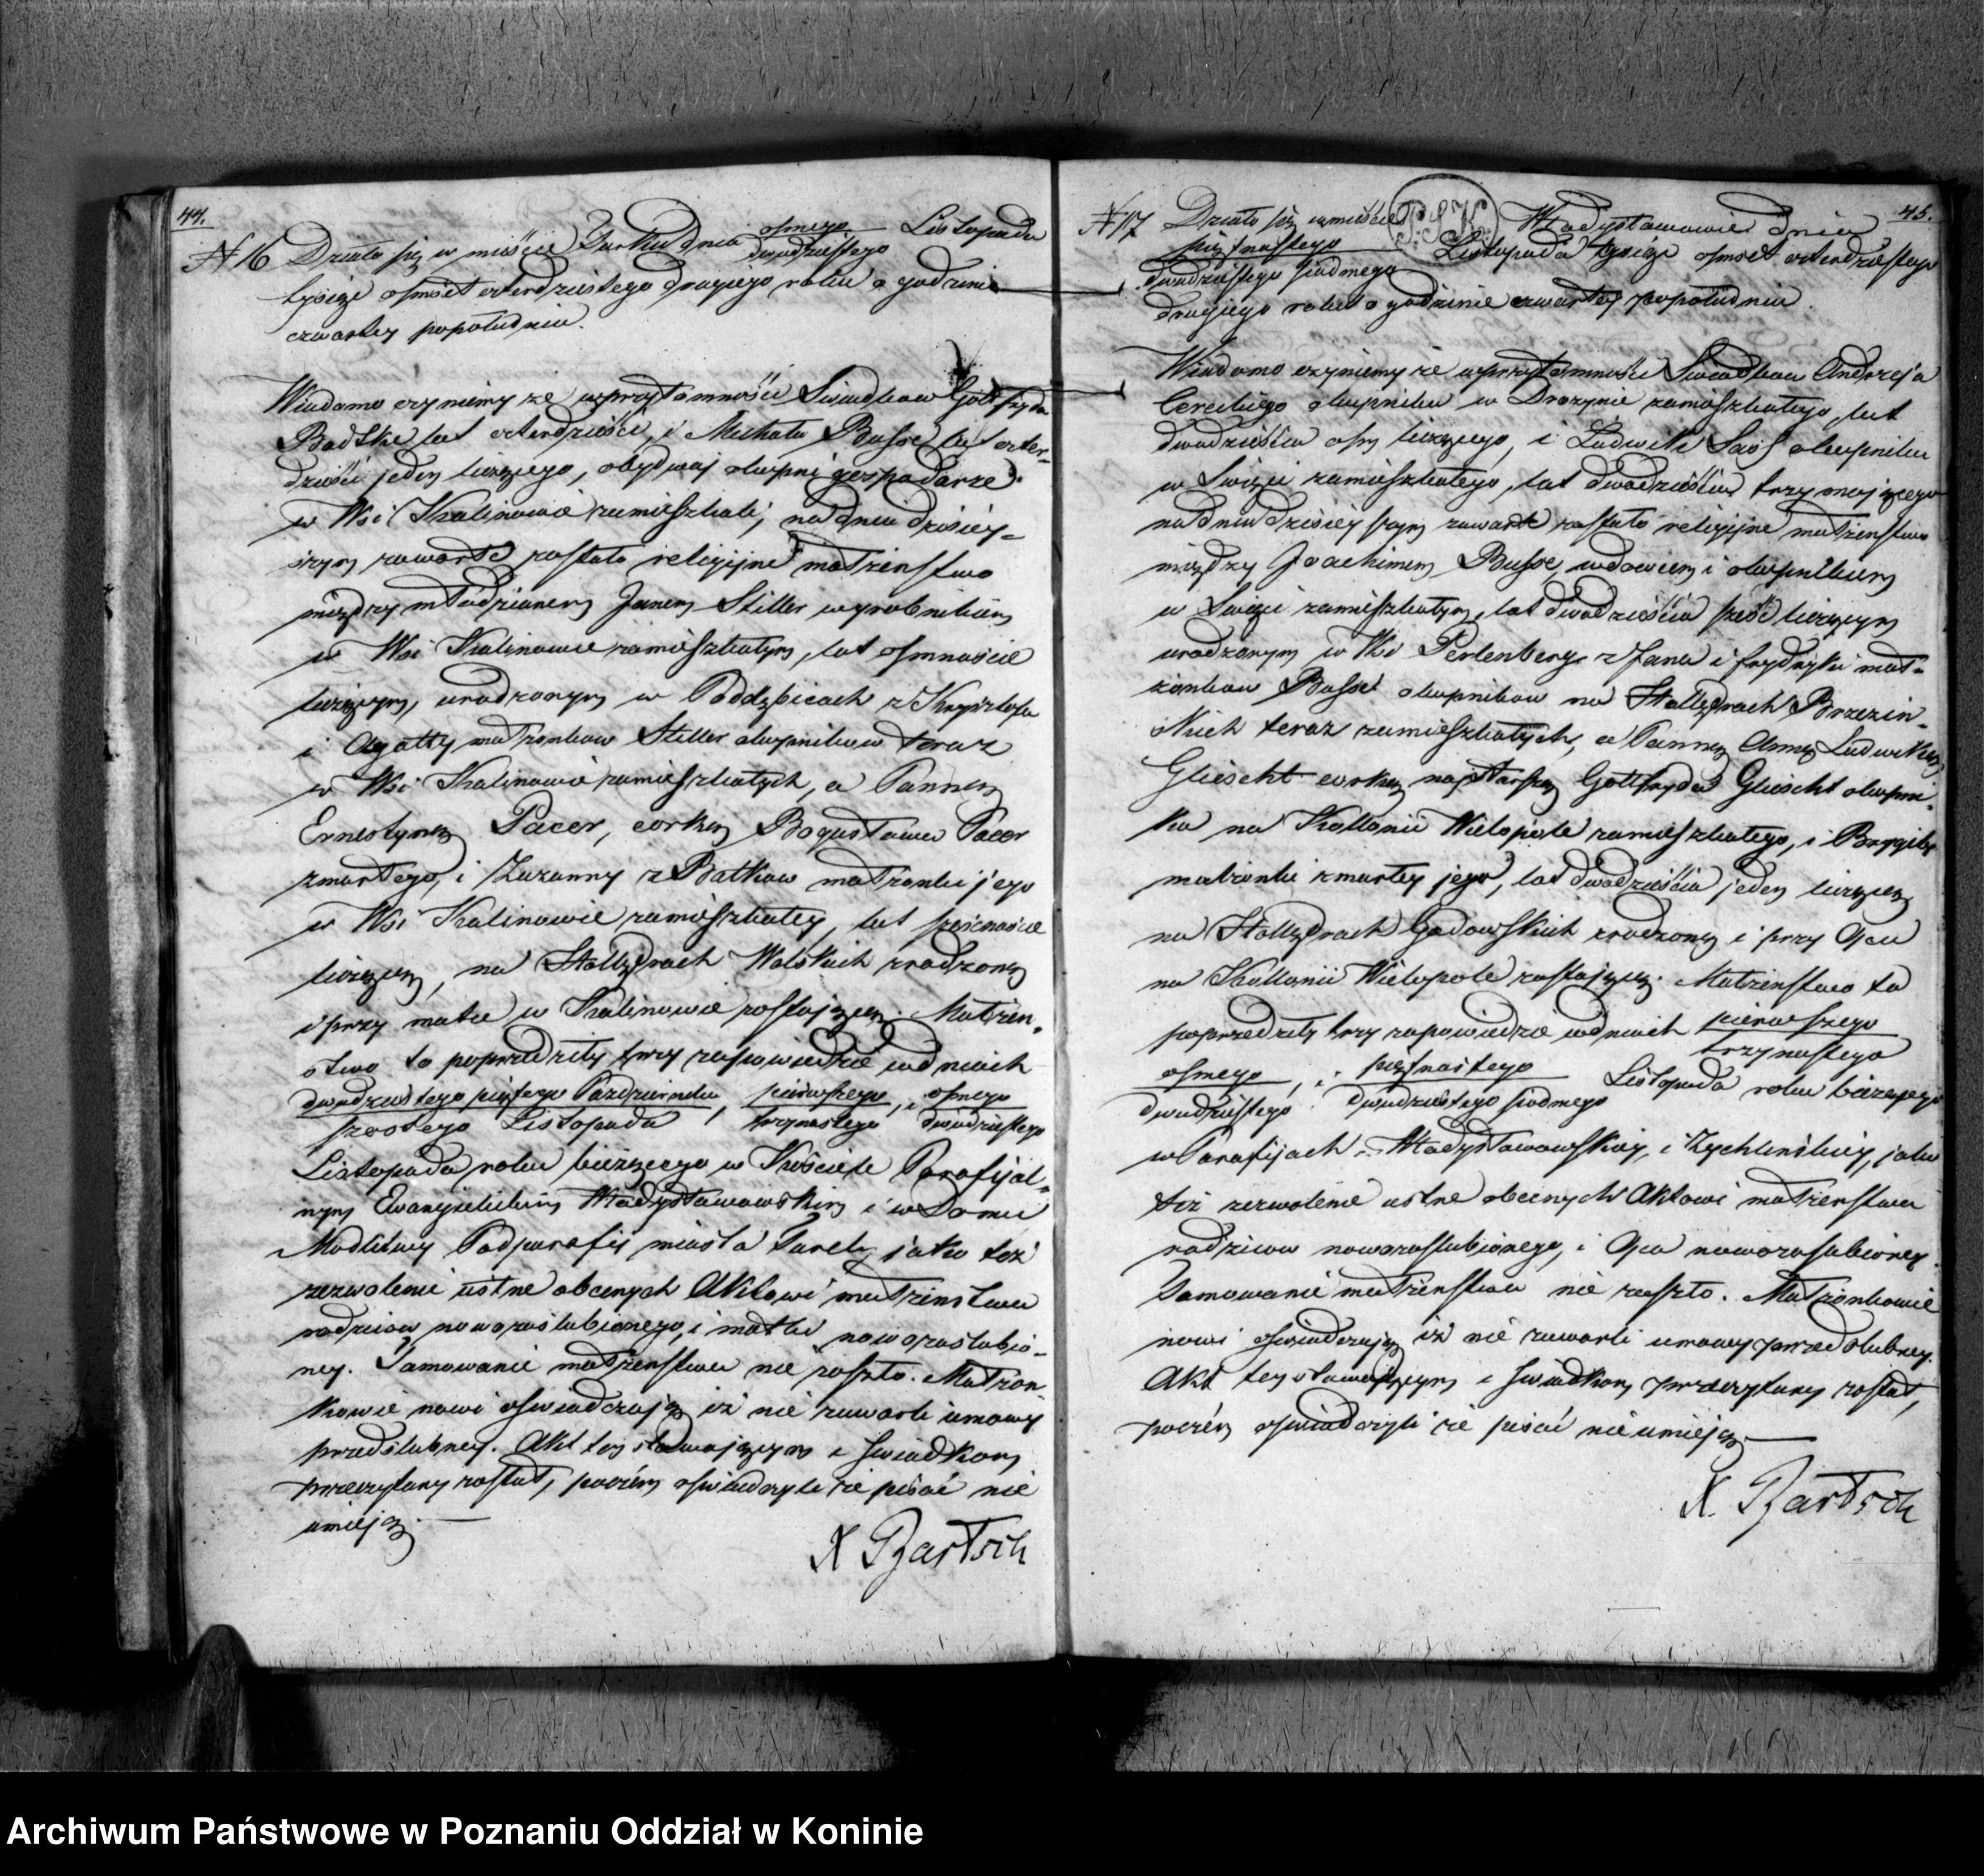 44.
N 16 Działo się w mieście Turku dnia osmego Listopada
dwudziestego
tysiąc osmset czterdziestego drugiego roku o godzinie
czwartey popołudniu.
Wiadomo czyniemy że w przytomności Świadków Gottfryda
Badtke lat czterdzieści, i Michała Busse lat czter-
dzieści jeden liczącego, obydwaj okupni gospodarze
w Wsi Kalinowie zamieszkali, na dniu dzisiey-
szym zawarte zostało religijne małżeństwo
między młodzianem Janem Stiller wyrobnikiem
w Wsi Kalinowie zamieszkałym, lat osmnaście
liczącym, urodzonym w Poddębicach z Krysztofa
i Agatty małżonków Stiller okupników teraz
w Wsi Kalinowie zamieszkałych, a Panną
Ernestyną Pacer, corką Bogusława Pacer
zmarłego, i Zuzanny z Batków małżonki jego
w Wsi Kalinowie zamieszkałey, lat szesnaście
liczącą, na Hollędrach Wolskich zrodzoną
i przy matce w Kalinowie zostającą. Małżeń-
stwo to poprzedziły trzy zapowiedzie w dniach
dwudziestego piątego Pazdziernika, pierwszego, i osmego
szostego Listopada, trzynastego dwudziestego
Listopada roku bieżącego w Kościele Parafijal-
nym Ewanjelickim Władysławowskim i w Domu
Modlitwy Podparafij miasta Turek, jako też
zezwolenie ustne obecnych Aktowi małżeństwa
rodziców nowozaślubionego, i matki nowozaślubio-
ney. Tamowanie małżeństwa nie zaszło. Małżon-
kowie nowi oświadczają iż nie zawarli umowy
przedślubney. Akt ten stawającym i świadkom
przeczytany został, poczém oświadczyli że pisać nie
umieją.
X Bartsch
45.
N 17 Działo się w mieście Władysławowie dnia
piętnastego Listopada tysiąc osmset czterdziestego
dwudziestego siodmego
drugiego roku o godzinie czwartey popołudniu.
P.S.K.
Wiadomo czyniemy że w przytomności Świadków Andrzeja
okupnika w Drozynie zamieszkałego, lat
dwadzieścia osm liczącego, i Ludwik okupnika
w Swięci zamieszkałego, lat dwadzieścia trzy mającego
na dniu dzisieyszym zawarte zostało religijne małżeństwo
między Joachimem Busse, wdowcem i okupnikiem
w Swięci zamieszkałym, lat dwadzieścia sześć liczącym
urodzonym w Wsi Perlenberg z Jana i Frydryki mał-
żonków Busse okupników na Hollędrach Brzeziń-
skich teraz zamieszkałych, a Panną Anną Ludwiką
Gliescht corką najstarszą Gottfryda Gliescht okupni-
ka na Kollonii Wielopole zamieszkałego, i Brygity
małżonki zmarłey jego, lat dwadzieścia jeden liczącą
na Hollędrach Gadowskich zrodzoną i przy Ojcu
na Kollonii Wielopole zostającą. Małżeństwo to
poprzedziły trzy zapowiedzie w dniach pierwszego
trzynastego
osmego, i piętnastego Listopada roku bieżącego
dwudziestego dwudziestego siodmego
w Parafijach Władysławowskiey, i Zychlinskiey, jako
też zezwolenie ustne obecnych Aktowi małżeństwa
rodziców nowozaslubionego, i Ojca nowozaslubioney.
Tamowanie małżeństwa nie zaszło. Małżonkowie
nowi oświadczają iż nie zawarli umowy przedslubney.
Akt ten stawającym i świadkom przeczytany został,
poczém oświadczyli że pisać nie umieją.
X. Bartsch
Archiwum Państwowe w Poznaniu Oddział w Koninie